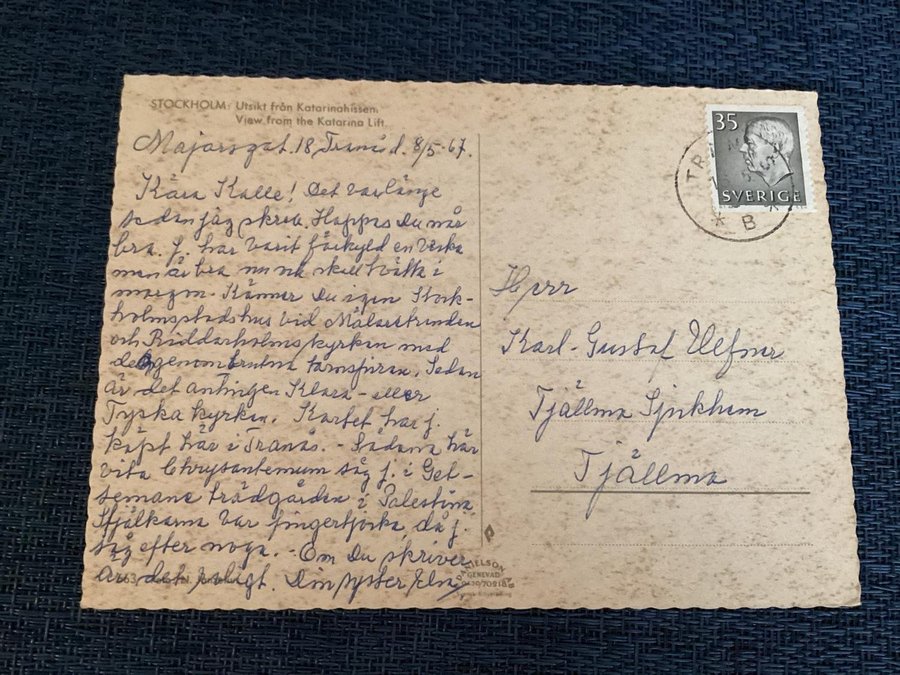 STOCKHOLM: Utsikt från Katarinahissen.
View from the Katarina Lift.
Majorsgat. 18 Tranås d. 8/5-67.
Kära Kalle! Det var länge
sedan jag skrev. Hoppas Du mår
bra. J. har varit förkyld en vecka
men är bra nu skall tvätta i
morgon. Känner Du igen Stock-
holmsstadshus vid Mälarstranden
och Riddarholmskyrkan med
den genombrutna tornspiran. Sedan
är det antingen Klara- eller
Tyska kyrkan. Kortet har j.
köpt här i Tranås. - Sådana här
vita Chrysantemum såg j. i Get-
semane trädgården i Palestina
Stjälkarna var fingertjocka, då j.
såg efter noga. - Om Du skriver
är det roligt. Din syster Elny
35
SVERIGE
B
Herr
Karl-Gustaf
Tjällmo Sjukhem
Tjällmo
DANIELSON
GENEVAD